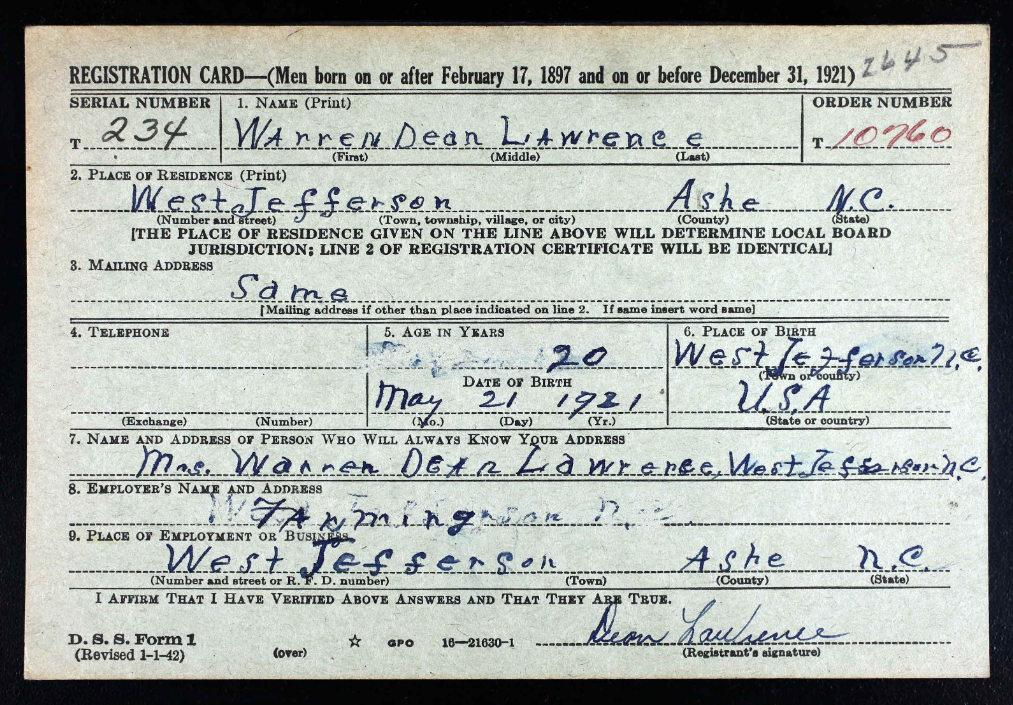 REGISTRATION CARD—(Men born on or after February 17, 1897 and on or before December 31, 1921) 2645
SERIAL NUMBER 1. NAME (Print) ORDER NUMBER
T 234 Warren Dean Lawrence T 10760
(First) (Middle) (Last)
2. PLACE OF RESIDENCE (Print)
West Jefferson Ashe N.C.
(Number and street) (Town, township, village, or city) (County) (State)
[THE PLACE OF RESIDENCE GIVEN ON THE LINE ABOVE WILL DETERMINE LOCAL BOARD
JURISDICTION; LINE 2 OF REGISTRATION CERTIFICATE WILL BE IDENTICAL]
3. MAILING ADDRESS
Same
[Mailing address if other than place indicated on line 2. If same insert word same]
4. TELEPHONE 5. AGE IN YEARS 6. PLACE OF BIRTH
20 West Jefferson N.C.
DATE OF BIRTH (Town or county)
May 21 1921 U.S.A
(Exchange) (Number) (Mo.) (Day) (Yr.) (State or country)
7. NAME AND ADDRESS OF PERSON WHO WILL ALWAYS KNOW YOUR ADDRESS
Mrs. Warren Dean Lawrence, West Jefferson N.C.
8. EMPLOYER'S NAME AND ADDRESS
Farming
9. PLACE OF EMPLOYMENT OR BUSINESS
West Jefferson Ashe N.C.
(Number and street or R. F. D. number) (Town) (County) (State)
I AFFIRM THAT I HAVE VERIFIED ABOVE ANSWERS AND THAT THEY ARE TRUE.
Dean Lawrence
D. S. S. Form 1 ☆ GPO 16—21630-1
(Revised 1-1-42) (over) (Registrant's signature)